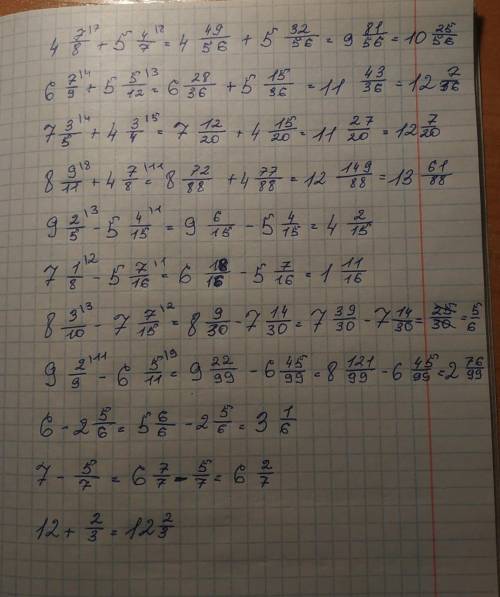 4 7/8 \7 + 5 4/7 \8 = 4 49/56 + 5 32/56 = 9 81/56 = 10 25/56
6 7/9 \4 + 5 5/12 \3 = 6 28/36 + 5 15/36 = 11 43/36 = 12 7/36
7 3/5 \4 + 4 3/4 \5 = 7 12/20 + 4 15/20 = 11 27/20 = 12 7/20
8 9/11 \8 + 4 7/8 \11 = 8 72/88 + 4 77/88 = 12 149/88 = 13 61/88
9 2/5 \3 - 5 4/15 \1 = 9 6/15 - 5 4/15 = 4 2/15
7 1/8 \2 - 5 7/16 \1 = 6 18/16 - 5 7/16 = 1 11/16
8 3/10 \3 - 7 7/15 \2 = 8 9/30 - 7 14/30 = 7 39/30 - 7 14/30 = 25/30 = 5/6
9 2/9 \11 - 6 5/11 \9 = 9 22/99 - 6 45/99 = 8 121/99 - 6 45/99 = 2 76/99
6 - 2 5/6 = 5 6/6 - 2 5/6 = 3 1/6
7 - 5/7 = 6 7/7 - 5/7 = 6 2/7
12 + 2/3 = 12 2/3